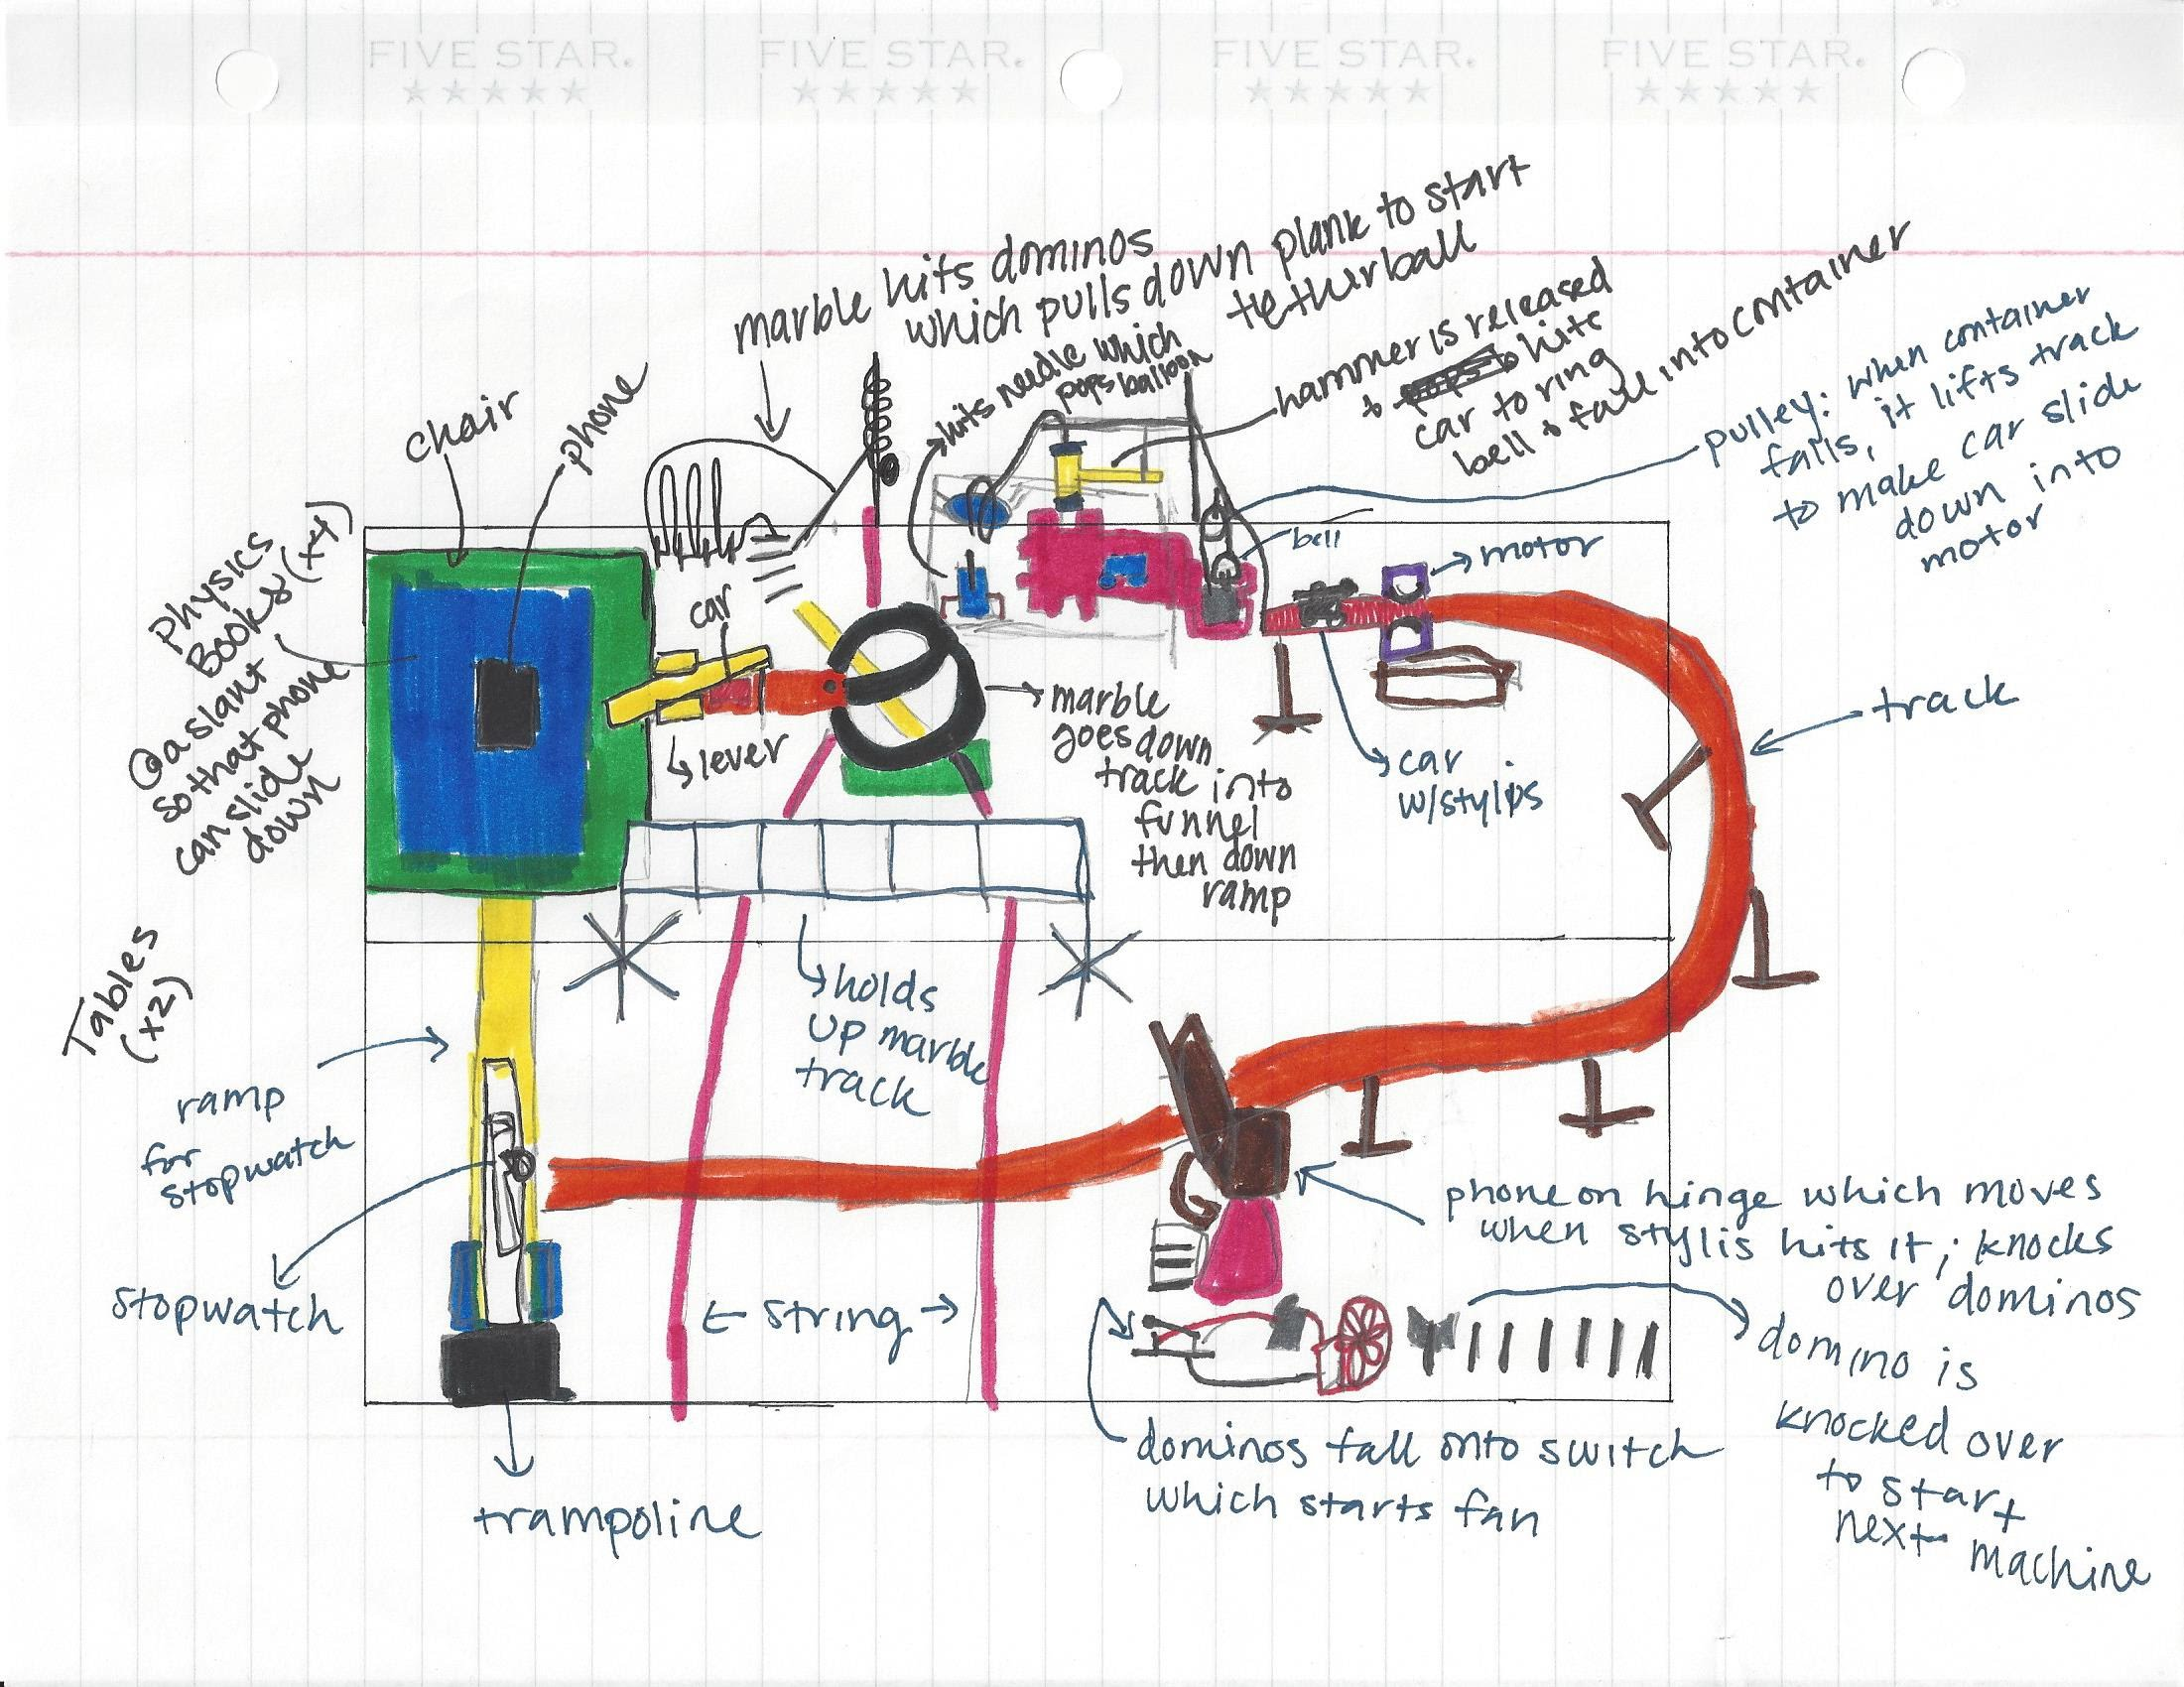 FIVE STAR.
FIVE STAR.
FIVE STAR.
FIVE STAR.
marble hits dominos
which pulls down plank to start
tetherball
hits needle which
pops balloon
hammer is released
& hits
car to ring
bell & fall into container
pulley: when container
falls, it lifts track
to make car slide
down into
motor
chair
phone
Physics
Books (x4)
@ a slant
so that phone
can slide
down
car
lever
bell
motor
marble
goes down
track into
funnel
then down
ramp
car
w/stylis
track
Tables
(x2)
holds
up marble
track
ramp
for
stopwatch
stopwatch
← string →
phone on hinge which moves
when stylis hits it; knocks
over dominos
domino is
knocked over
to start
next machine
dominos fall onto switch
which starts fan
trampoline